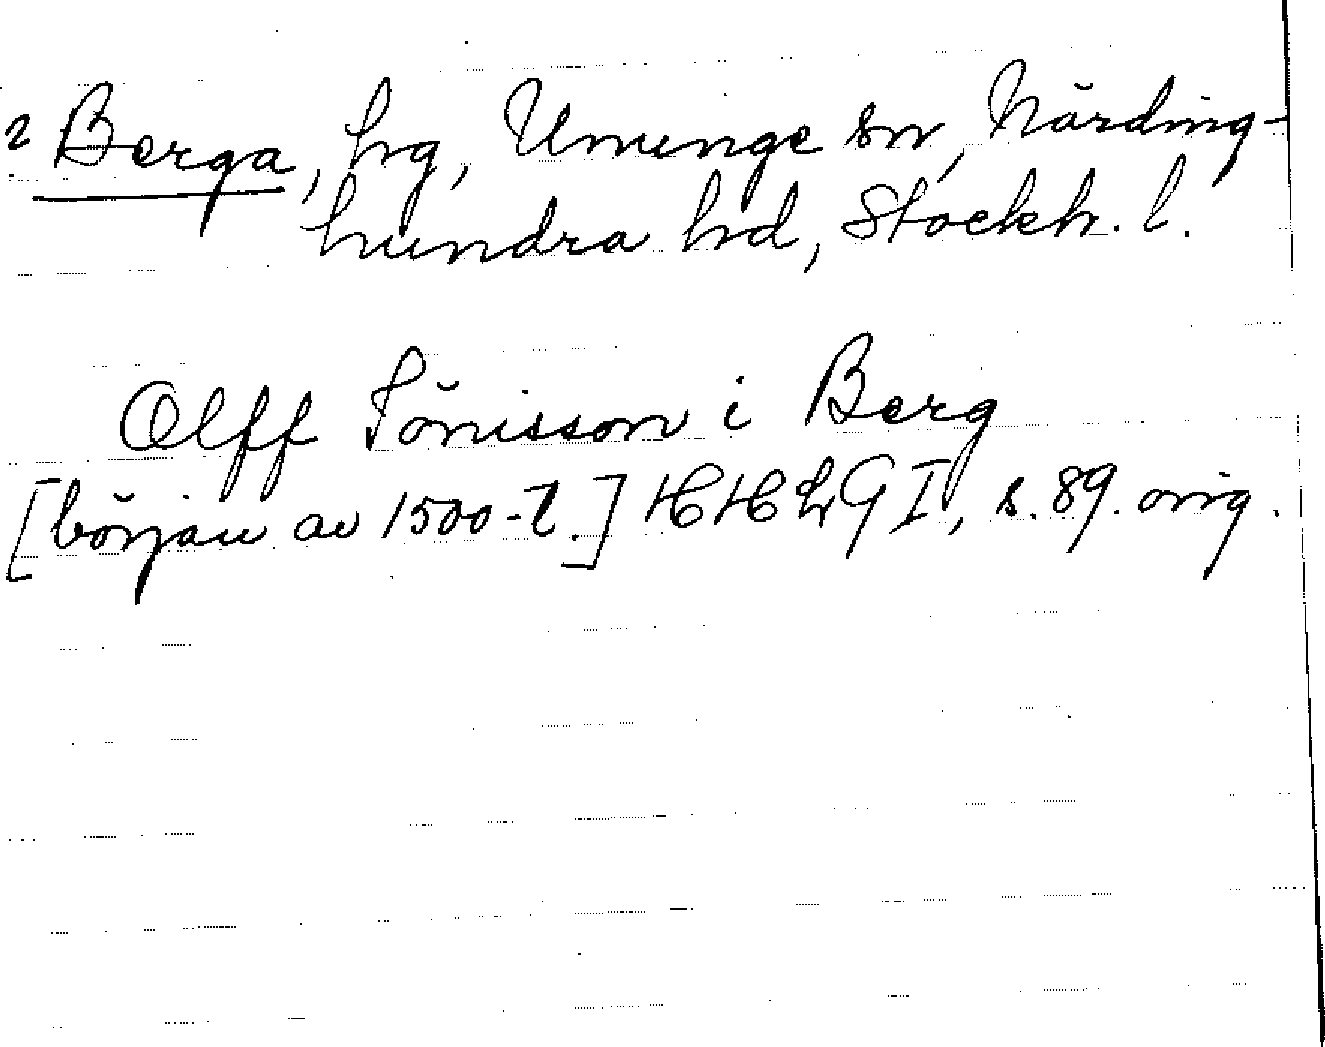 2 Berga, hg, Ununge sn, Närding-
hundra hd, Stockh. l.
Olff Sönisson i Berg
[början av 1500-t.] HHLG I, s. 89. orig.